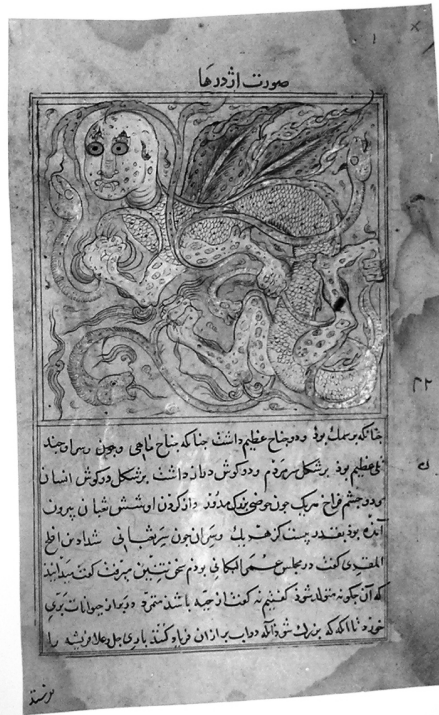 صورت اژدرها
چنانکه برسمك بوذ و دو جناح عظیم داشت چنانکه جناح ماهی و چون وسراو چند
تلی عظیم بوذ برشکل سر مردم و دو کوش دراز داشت برشکل دو کوش انسان
و دو چشم فراخ هریك چون حوضی بزرك مدور و از کردن او شش ثعبان بیرون
آمده بوذ بقدر بیست کز هریك و سران چون سر ثعبانی شداد بن افلح
المقدی کفت در مجلس عمر البکائی بودم سخن تنین میرفت کفت میدانید
که آن چکونه متولد شوذ کفتیم نه کفت از حیه باشد متمرد در براز حیوانات بری
خورد تا انکه که بزرك شود آنکه دواب بر ازان فریاد کنند باری جل وعلا فریشه را
بفرستد